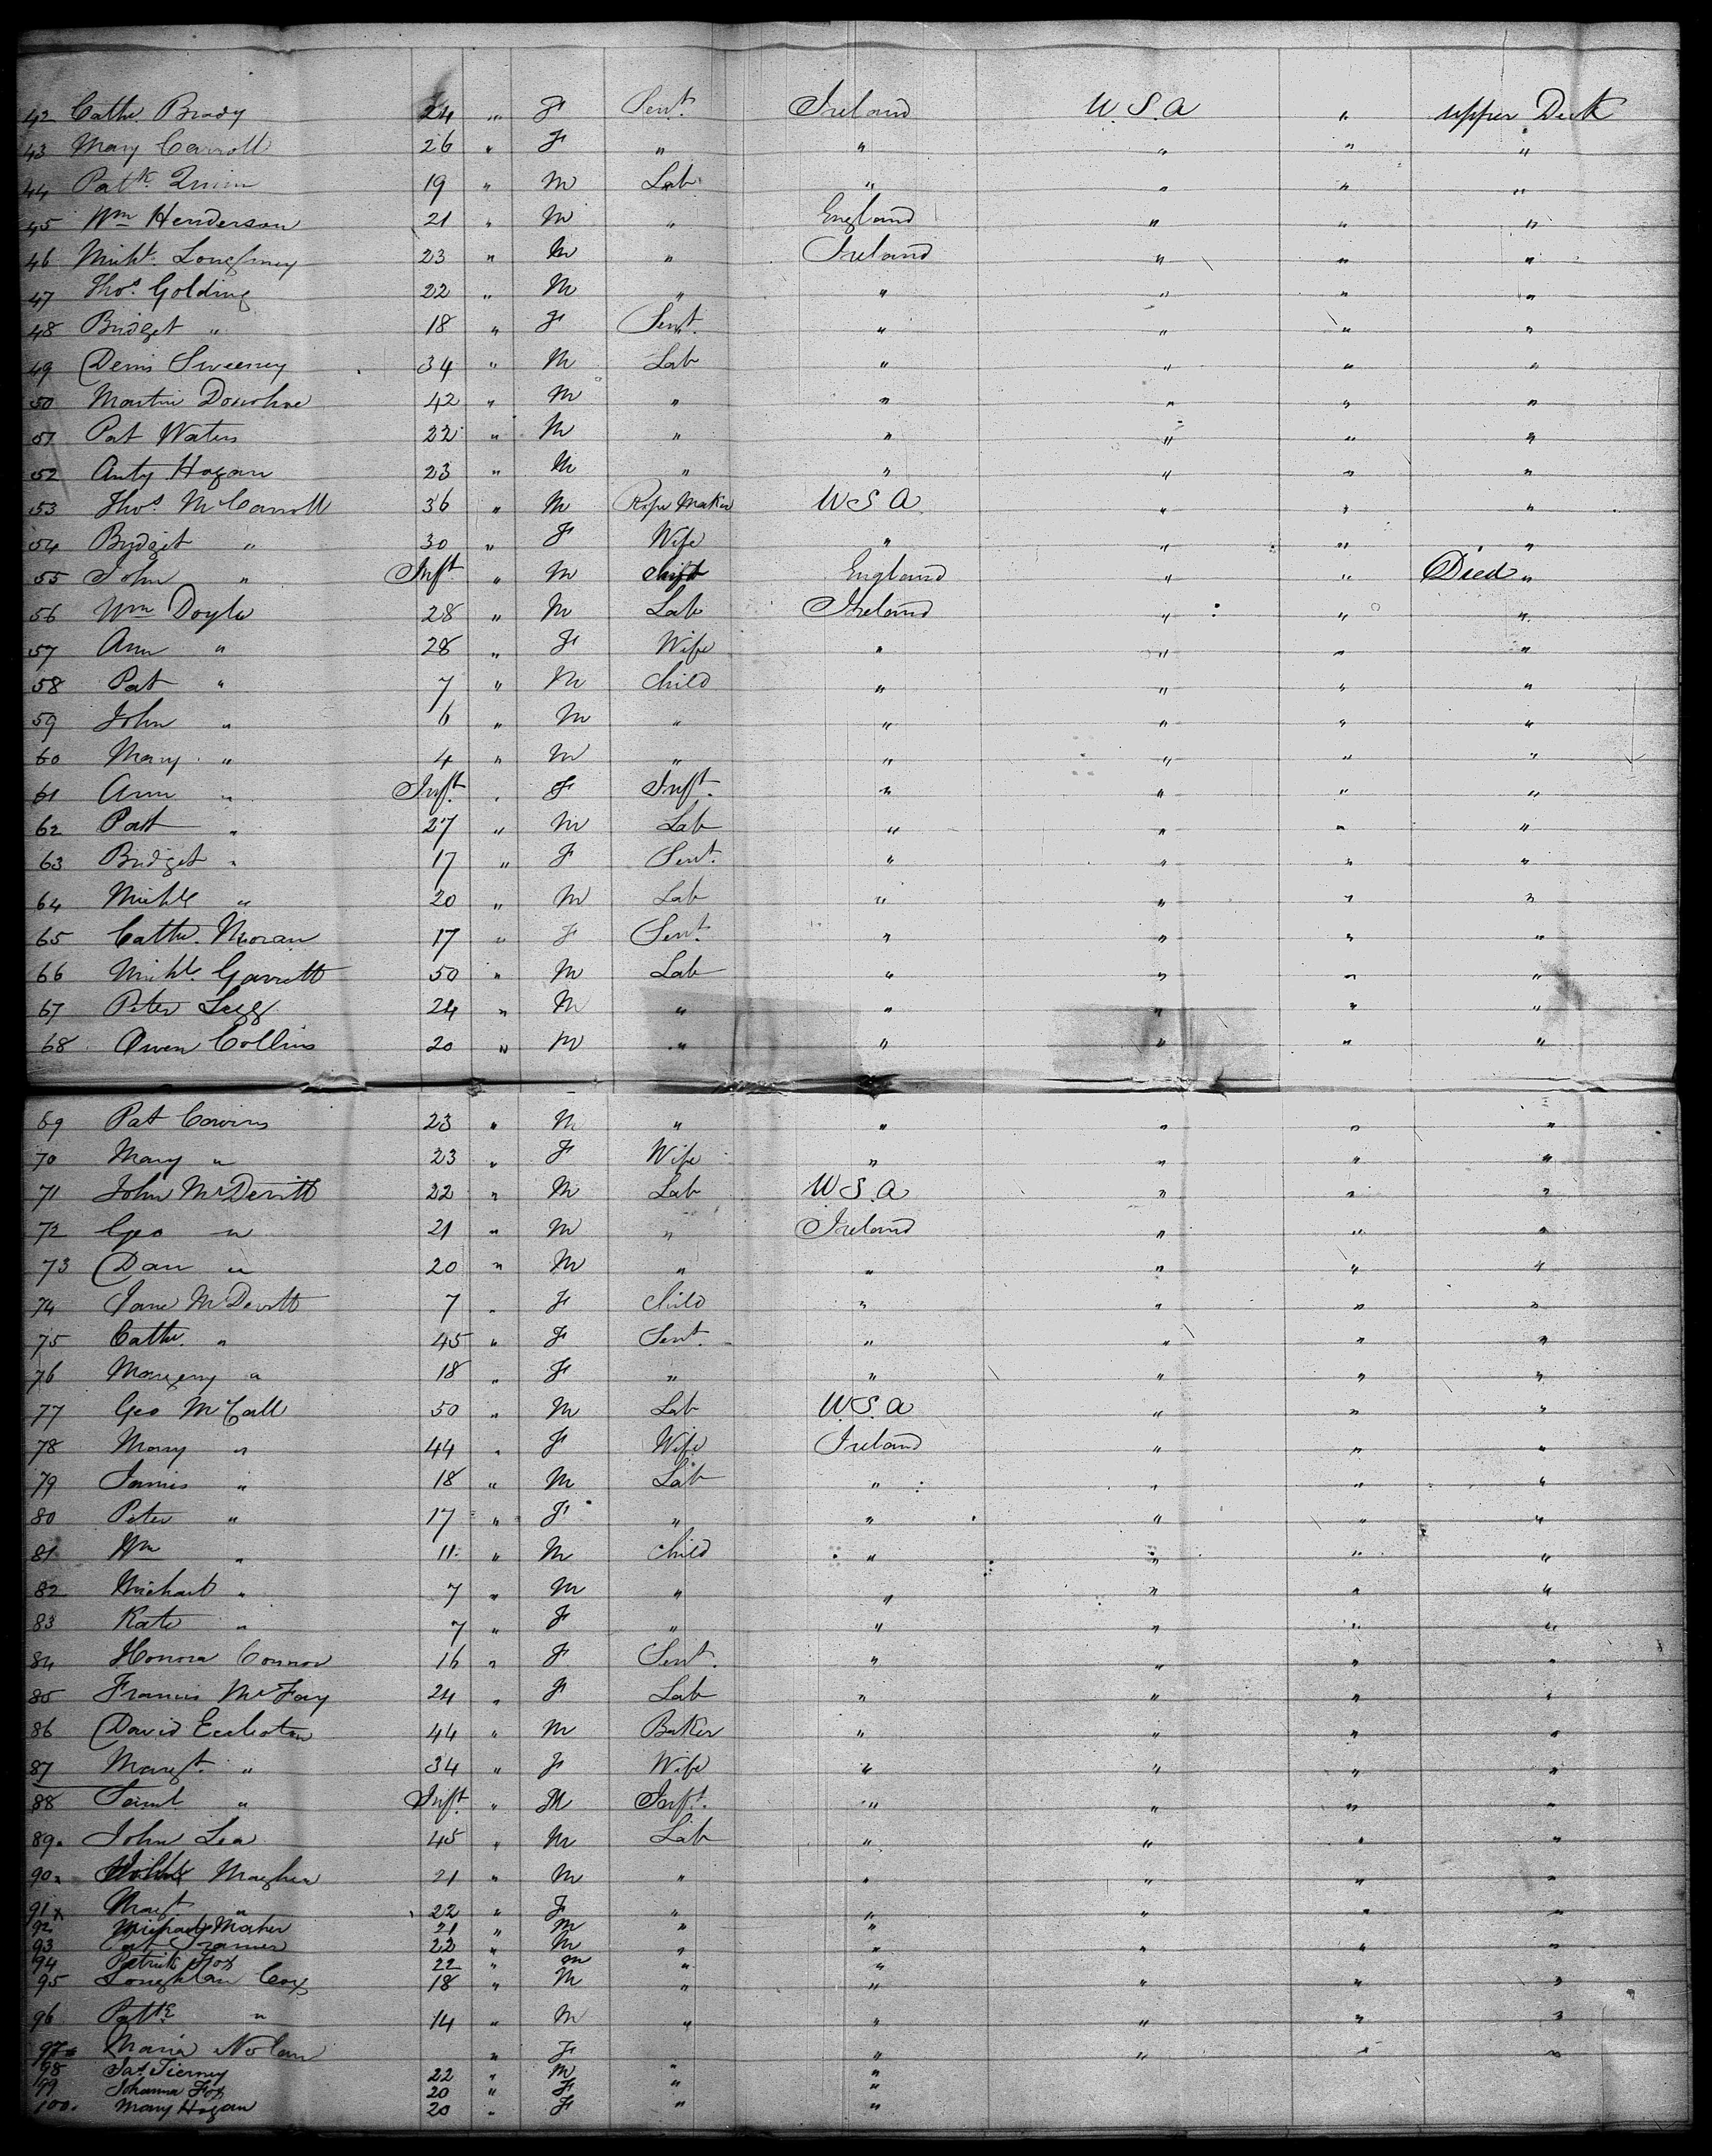 42 Cathe. Brady 24 " F Servt. Ireland U.S.A " upper Deck
43 Mary Carroll 26 " F " " " " "
44 Patk. Quinn 19 " M Lab " " " "
45 Wm Henderson 21 " M " England " " "
46 Michl. 23 " M " Ireland " " "
47 Thos. Golding 22 " M " " " " "
48 Bridget " 18 " F Servt. " " " "
49 Denis Sweeney 34 " M Lab " " " "
50 Martin Donohoe 42 " M " " " " "
51 Pat Waters 22 " M " " " " "
52 Anty Hogan 23 " M " " " " "
53 Thos. McCarroll 36 " M Rope Maker U S A " " "
54 Bridget " 30 " F Wife " " " "
55 John " Inft " M child England " " Died "
56 Wm Doyle 28 " M Lab Ireland " " "
57 Ann " 28 " F Wife " " " "
58 Pat " 7 " M Child " " " "
59 John " 6 " M " " " " "
60 Mary " 4 " M " " " " "
61 Ann " Inft. " F Inft. " " " "
62 Patt " 27 " M Lab " " " "
63 Bridget " 17 " F Servt. " " " "
64 Michl " 20 " M Lab " " " "
65 Cathe. Moran 17 " F Servt. " " " "
66 Michl. Garrett 50 " M Lab " " " "
67 Peter Legg 24 " M " " " " "
68 Owen Collins 20 " M " " " " "
69 Pat 23 " M " " " " "
70 Mary " 23 " F Wife " " " "
71 John McDevitt 22 " M Lab U S. A " " "
72 Geo " 21 " M " Ireland " " "
73 Dan " 20 " M " " " " "
74 Jane McDevitt 7 " F Child " " " "
75 Cathe. " 45 " F Servt. " " " "
76 Margery " 18 " F " " " " "
77 Geo McCall 50 " M Lab U.S. A " " "
78 Mary " 44 " F Wife Ireland " " "
79 James " 18 " M Lab " " " "
80 Peter " 17 " F " " " " "
81 Wm " 11 " M Child " " " "
82 Michael " 7 " M " " " " "
83 Kate " 7 " F " " " " "
84 Honora Connor 16 " F Servt. " " " "
85 Francis McFay 24 " F Lab " " " "
86 David Eccleston 44 " M Baker " " " "
87 Margt. " 34 " F Wife " " " "
88 Saml " Inft. " M Inft. " " " "
89 John Lea 45 " M Lab " " " "
90 Maghen 21 " M " " " " "
91 Margt " 22 " F " " " " "
92 Michael Maher 21 " M " "
93 22 " M " " " " "
94 Patrick Fox 22 " M " "
95 Loughlan Cox 18 " M " " " " "
96 Patk " 14 " M " " " " "
97 Maria Nolan " F " " " "
98 Jas. Tierney 22 " M " "
99 Johanna Fox 20 " F " "
100. Mary Hogan 20 " F " "